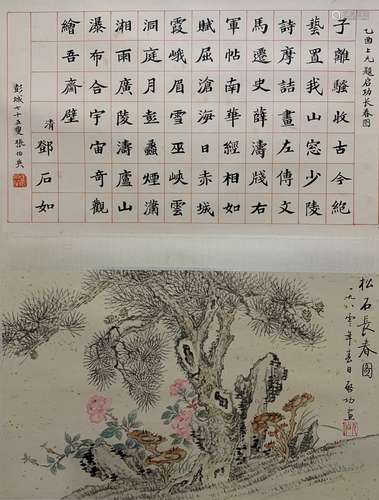 乙酉上元題启功長春图
子離騷收古今絕
藝置我山窓少陵
詩摩詰畫左傳文
馬遷史薛濤牋右
軍帖南華經相如
賦屈滄海日赤城
霞峨眉雪巫峽雲
洞庭月彭蠡煙瀟
湘雨廣陵濤廬山
瀑布合宇宙奇觀
繪吾齋壁
清鄧石如
彭城七十五叟張伯英
松石長春圖
一九八零年春日启功画